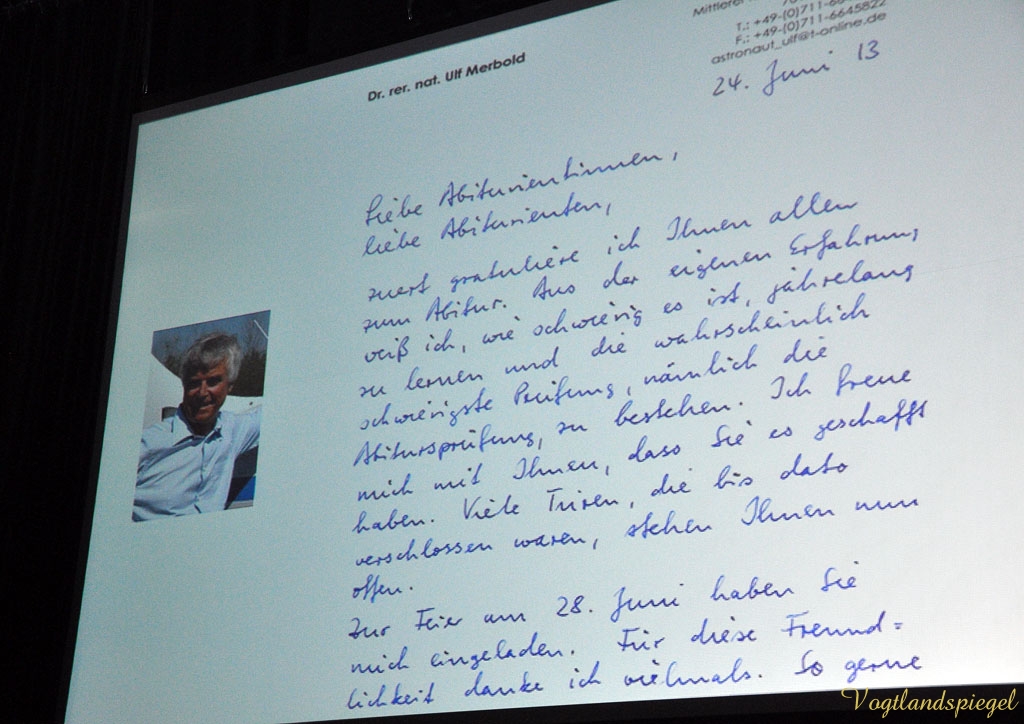 Mittlerer
T.: +49-(0)711-
F.: +49-(0)711-6645822
astronaut_ulf@t-online.de
Dr. rer. nat. Ulf Merbold
24. Juni 13
Liebe Abiturientinnen,
liebe Abiturienten,
zuerst gratuliere ich Ihnen allen
zum Abitur. Aus der eigenen Erfahrung
weiß ich, wie schwierig es ist, jahrelang
zu lernen und die wahrscheinlich
schwierigste Prüfung, nämlich die
Abitursprüfung, zu bestehen. Ich freue
mich mit Ihnen, dass Sie es geschafft
haben. Viele Türen, die bis dato
verschlossen waren, stehen Ihnen nun
offen.
Zur Feier am 28. Juni haben Sie
mich eingeladen. Für diese Freund=
lichkeit danke ich vielmals. So gerne
Vogtlandspiegel